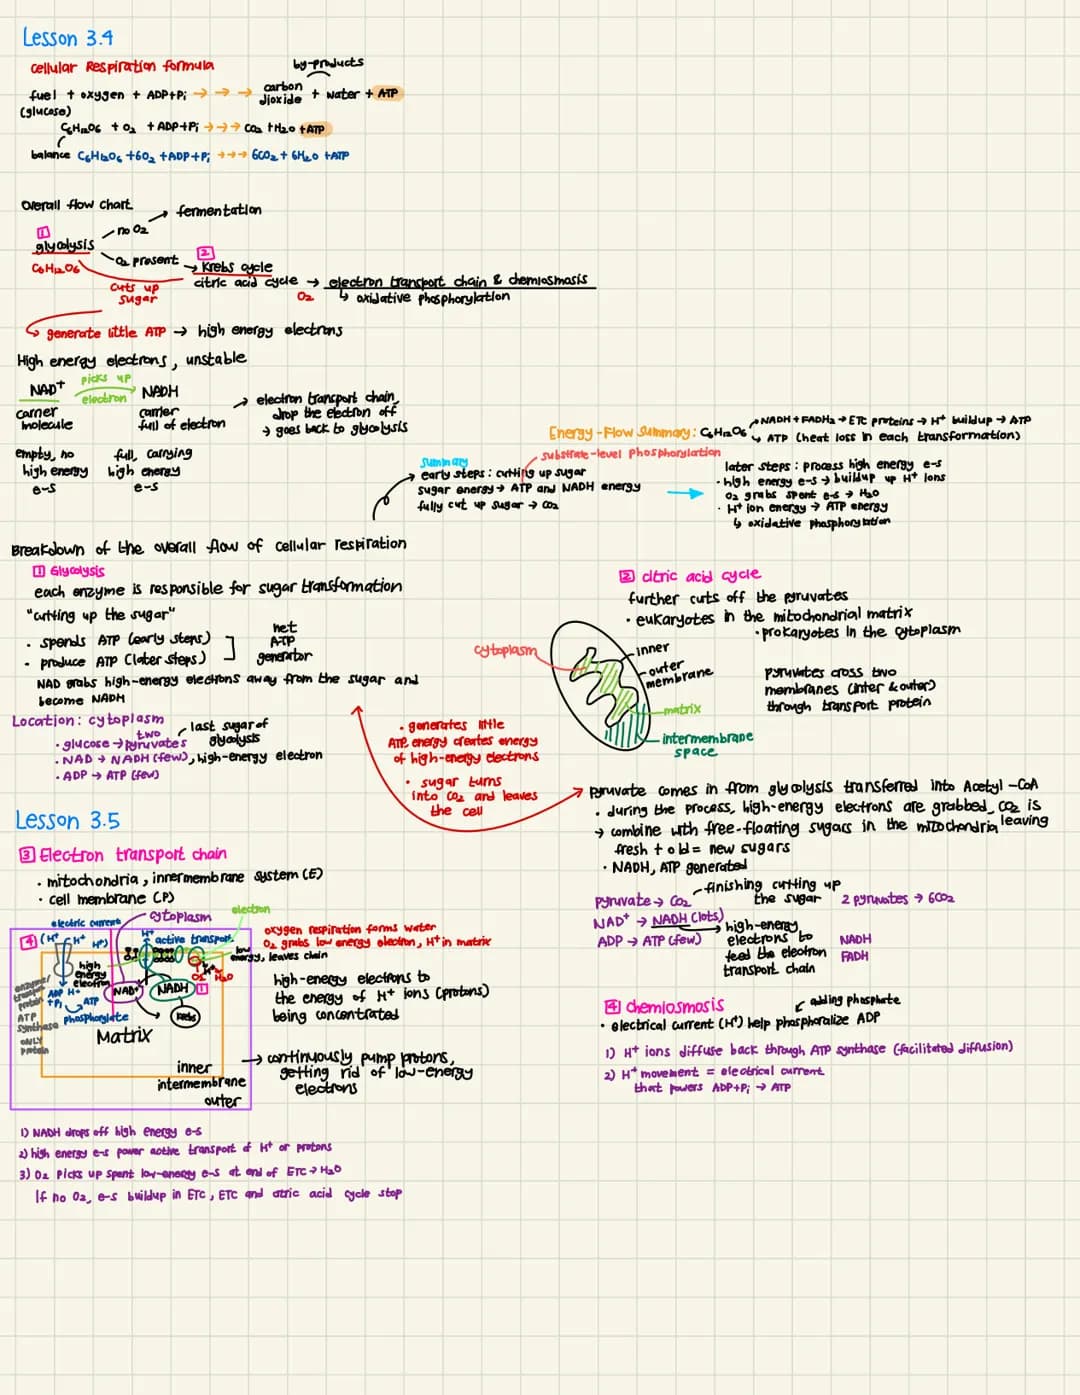 Lesson 3.4
cellular Respiration formula
by-products
fuel + oxygen + ADP+Pi → → → carbon dioxide + water + ATP
(glucose)
C6H12O6 + O2 + ADP+Pi →→→ CO2 + H2O + ATP
balance C6H12O6 + 6O2 + ADP+Pi →→→ 6CO2 + 6H2O + ATP
Overall flow chart
1
glycolysis
C6H12O6
no O2 → fermentation
O2 present →
2
Krebs cycle
citric acid cycle → electron transport chain & chemiosmosis
O2 ↳ oxidative phosphorylation
cuts up
sugar
generate little ATP → high energy electrons
High energy electrons, unstable
NAD+ picks up electron NADH
carrier
molecule
carrier
full of electron
empty, no
high energy
e-s
full, carrying
high energy
e-s
→ electron transport chain,
drop the electron off
→ goes back to glycolysis
Energy-Flow Summary: C6H12O6
NADH + FADH2 → ETC proteins → H+ buildup → ATP
↳ ATP (heat loss in each transformation)
substrate-level phosphorylation
summary
early steps: cutting up sugar
sugar energy → ATP and NADH energy
fully cut up sugar → CO2
later steps: process high energy e-s
• high energy e-s → buildup up H+ ions
O2 grabs spent e-s → H2O
• H+ ion energy → ATP energy
↳ oxidative phosphorylation
Breakdown of the overall flow of cellular respiration
1 Glycolysis
each enzyme is responsible for sugar transformation
"cutting up the sugar"
• spends ATP (early steps)
• produce ATP (later steps)
net
ATP
generator
NAD grabs high-energy electrons away from the sugar and
become NADH
Location: cytoplasm
• glucose → two pyruvates
last sugar of
glycolysis
• NAD → NADH (few), high-energy electron
• ADP → ATP (few)
• generates little
ATP, energy creates energy
of high-energy electrons
• sugar turns
into CO2 and leaves
the cell
2 citric acid cycle
further cuts off the pyruvates
• eukaryotes in the mitochondrial matrix
• prokaryotes in the cytoplasm
cytoplasm
inner
outer
membrane
matrix
intermembrane
space
pyruvates cross two
membranes (inter & outer)
through transport protein
pyruvate comes in from glycolysis transferred into Acetyl-CoA
• during the process, high-energy electrons are grabbed, CO2 is
leaving
→ combine with free-floating sugars in the mitochondria
fresh + old = new sugars
• NADH, ATP generated
pyruvate → CO2
finishing cutting up
the sugar
2 pyruvates → 6CO2
NAD+ → NADH (lots)
ADP → ATP (few)
high-energy
electrons to
feed the electron
transport chain
NADH
FADH
Lesson 3.5
3 Electron transport chain
• mitochondria, innermembrane system (E)
• cell membrane (P)
electric current
cytoplasm
electron
4
(H+ H+ H+)
H+
active transport
low
energy, leaves chain
high
energy
electron
enzyme/
transport
protein
ATP
synthase
ONLY
protein
ADP
+Pi
H+
ATP
phosphorylate
NAD+
NADH
1
O2
H+
H2O
Krebs
Matrix
inner
intermembrane
outer
oxygen respiration forms water
O2 grabs low energy electron, H+ in matrix
high-energy electrons to
the energy of H+ ions (protons)
being concentrated
→ continuously pump protons,
getting rid of low-energy
electrons
1) NADH drops off high energy e-s
2) high energy e-s power active transport of H+ or protons
3) O2 picks up spent low-energy e-s at end of ETC → H2O
If no O2, e-s buildup in ETC, ETC and citric acid cycle stop
4 chemiosmosis
adding phosphate
• electrical current (H+) help phosphoralize ADP
1) H+ ions diffuse back through ATP synthase (facilitated diffusion)
2) H+ movement = electrical current
that powers ADP+Pi → ATP